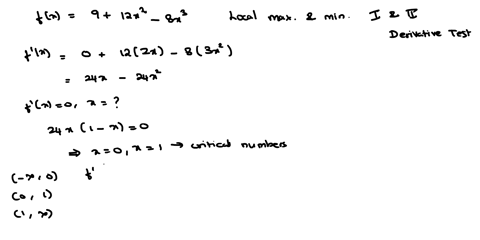 f(x) = 9 + 12x² - 8x³ Local max. & min. I & II
Derivative Test
f'(x) = 0 + 12(2x) - 8(3x²)
= 24x - 24x²
f'(x)=0, x = ?
24x(1-x)=0
⇒ x=0, x=1 → critical numbers
(-∞, 0) f'
(0, 1)
(1, ∞)